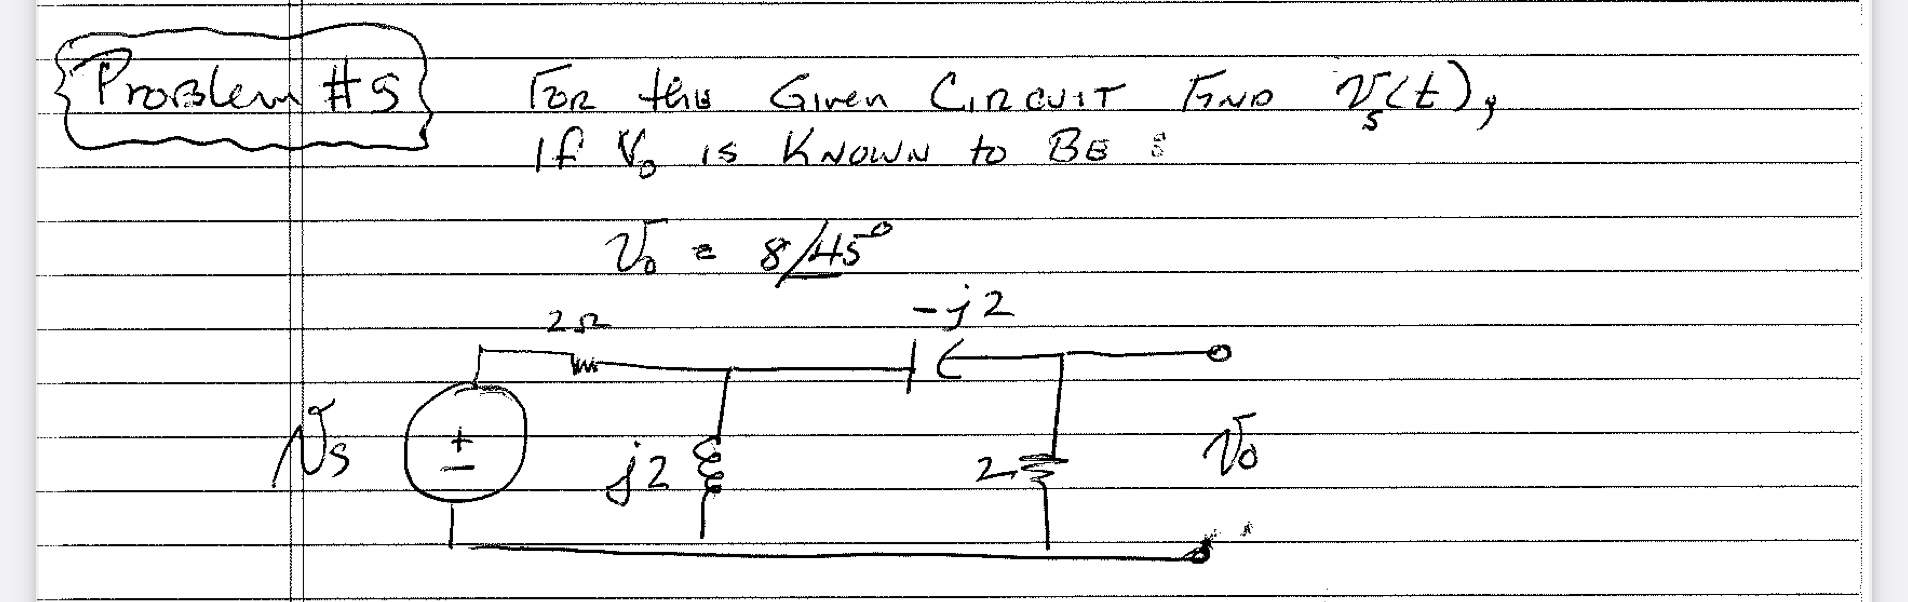 Problem #5 For this Given Circuit Find Vs(t),
If Vo is Known to Be :
Vo = 8/45°
-j2
2Ω
Vs + − j2 2 Vo